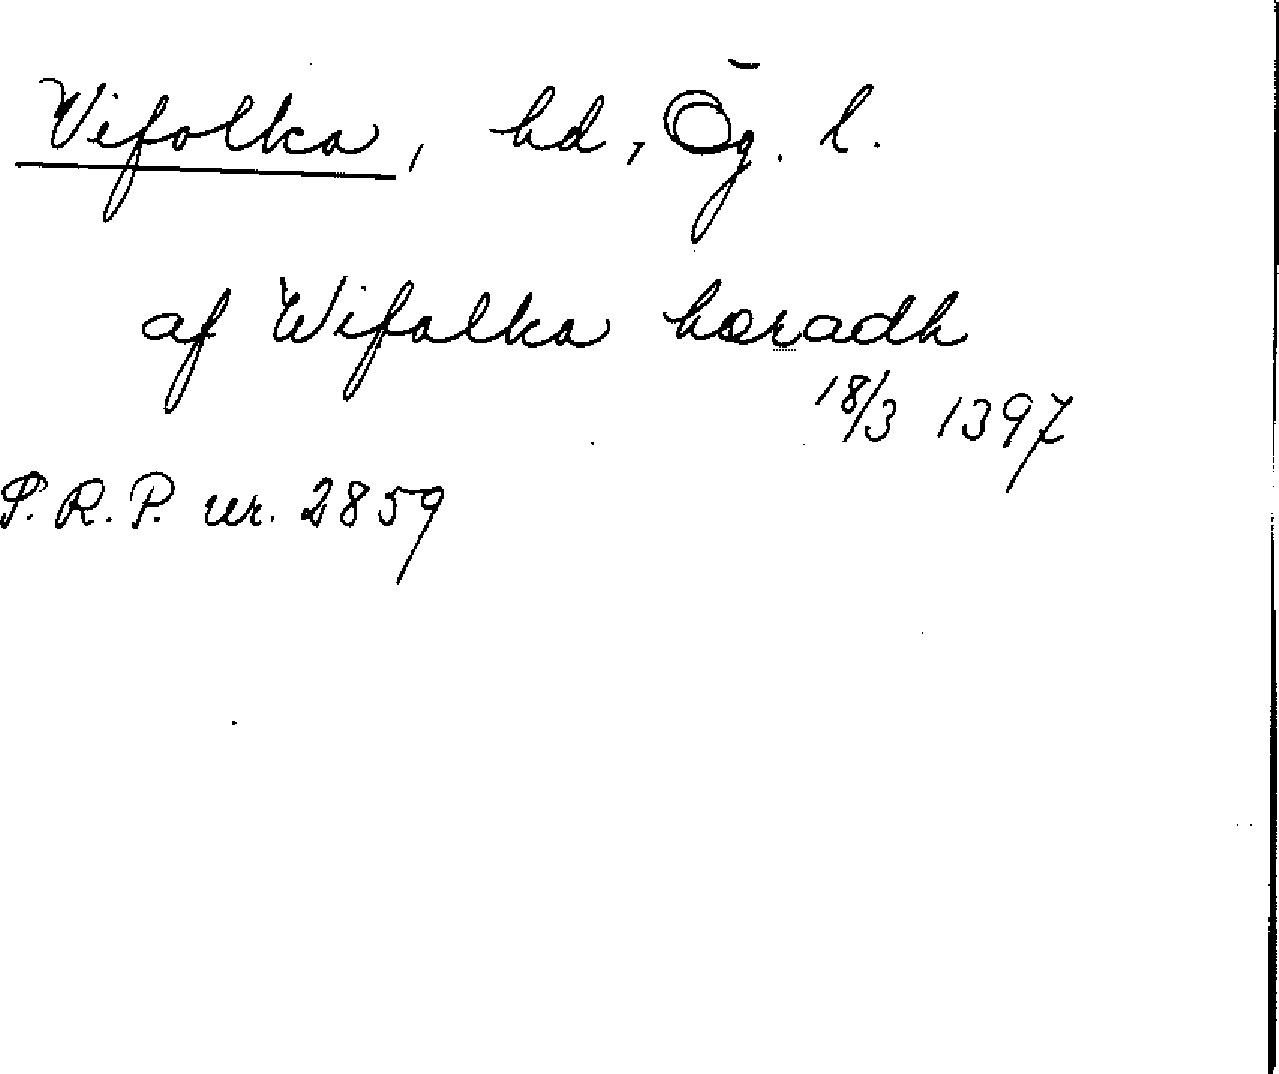 Vifolka, hd, Ög. l.
af Wifolka hæradh
18/3 1397
S.R.P. nr. 2859